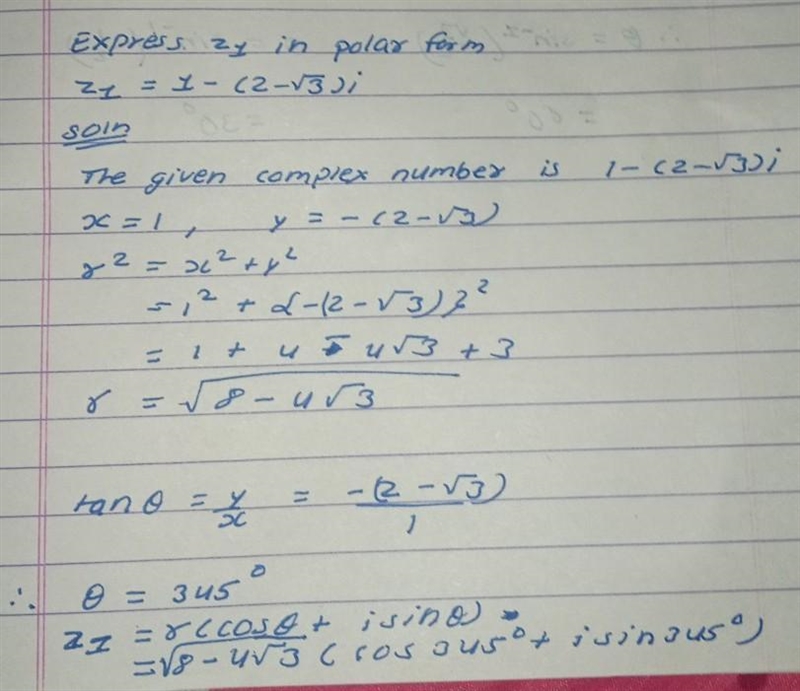 Express z1 in polar form
z1 = 1 - (2-√3)i
soln
The given complex number is 1-(2-√3)i
x = 1, y = -(2-√3)
r² = x² + y²
= 1² + {-(2-√3)}²
= 1 + 4 - 4√3 + 3
r = √8 - 4√3
tan θ = y/x = -(2-√3)/1
∴ θ = 345°
z1 = r(cosθ + isinθ)
= √8-4√3 (cos 345° + isin345°)